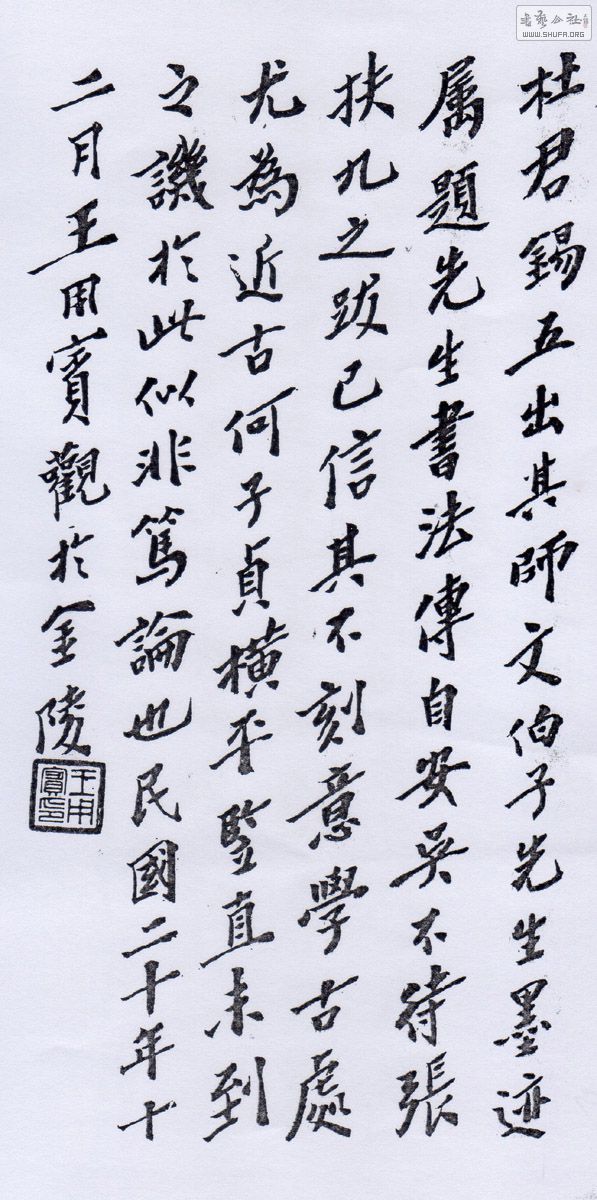 杜君錫五出其師文伯子先生墨迹
属題先生書法傳自安吳不待張
扶九之跋已信其不刻意學古處
尤為近古何子貞橫平竪直未到
之譏於此似非篤論也民國二十年十
二月王用賓觀於金陵
王用
賓印
書藝公社
WWW.SHUFA.ORG